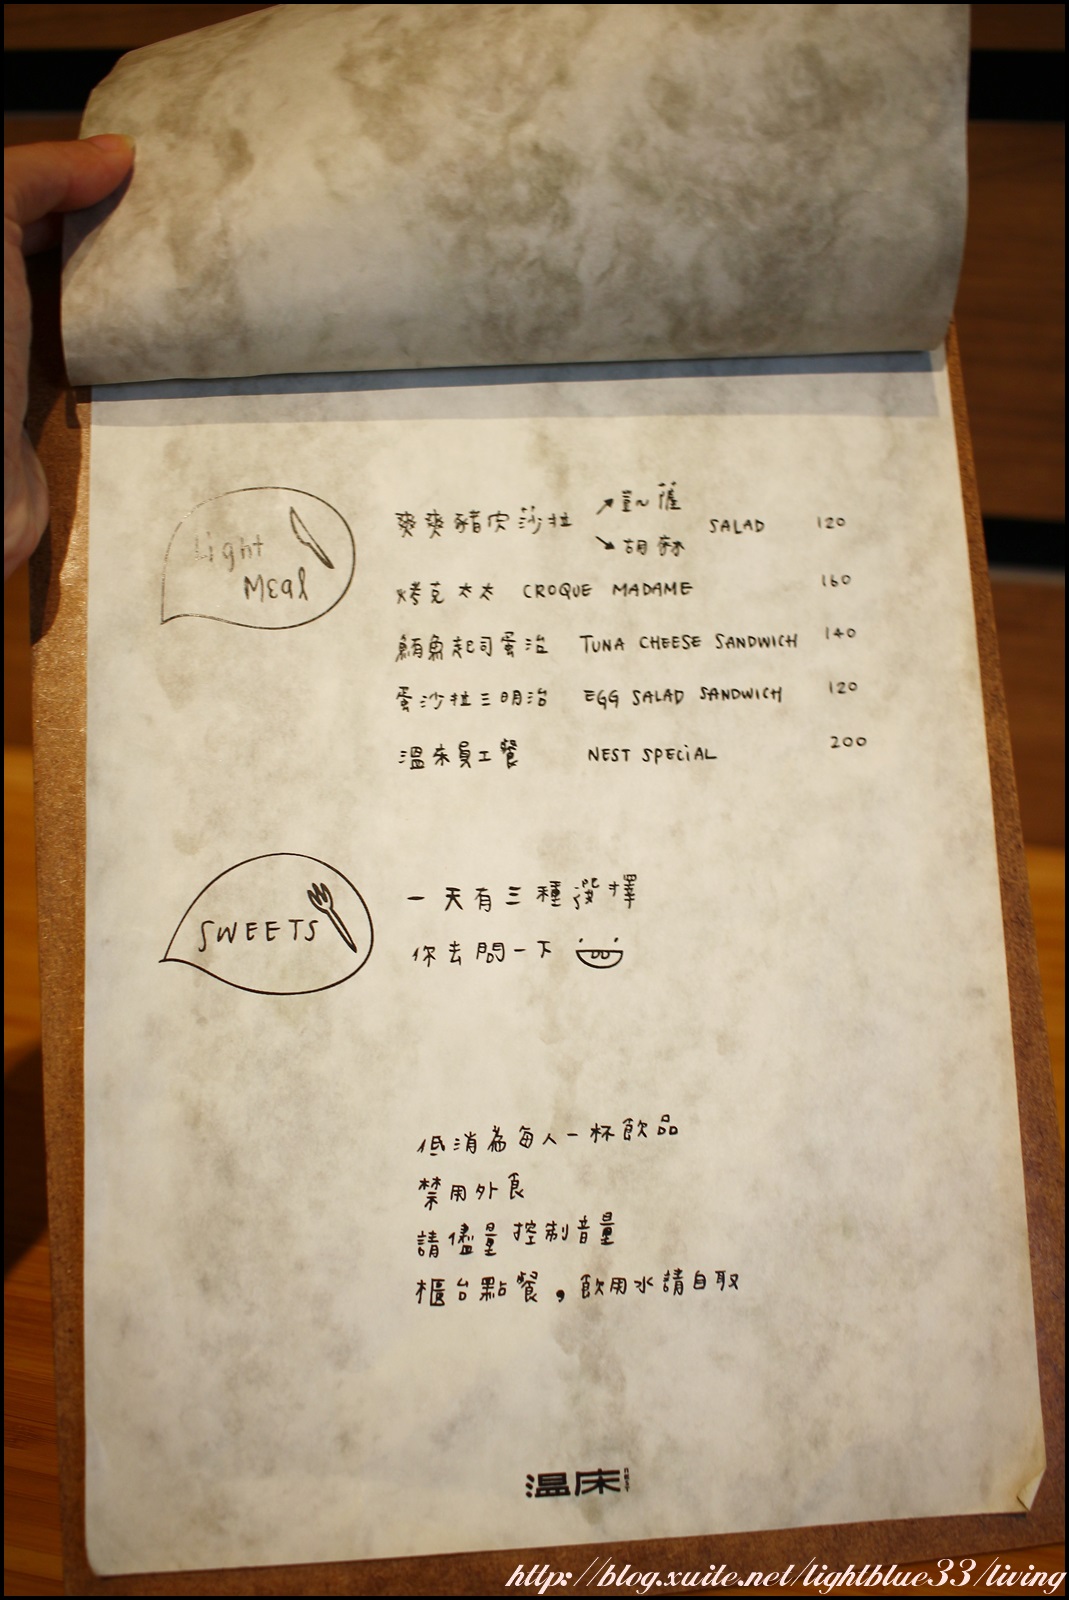 Light Meal
爽爽豬肉沙拉 ↗凱薩 ↘胡麻 SALAD 120
烤克太太 CROQUE MADAME 160
鮪魚起司蛋治 TUNA CHEESE SANDWICH 140
蛋沙拉三明治 EGG SALAD SANDWICH 120
溫床員工餐 NEST SPECIAL 200
SWEETS
一天有三種選擇
你去問一下
低消為每人一杯飲品
禁用外食
請儘量控制音量
櫃台點餐，飲用水請自取
溫床
http://blog.xuite.net/lightblue33/living